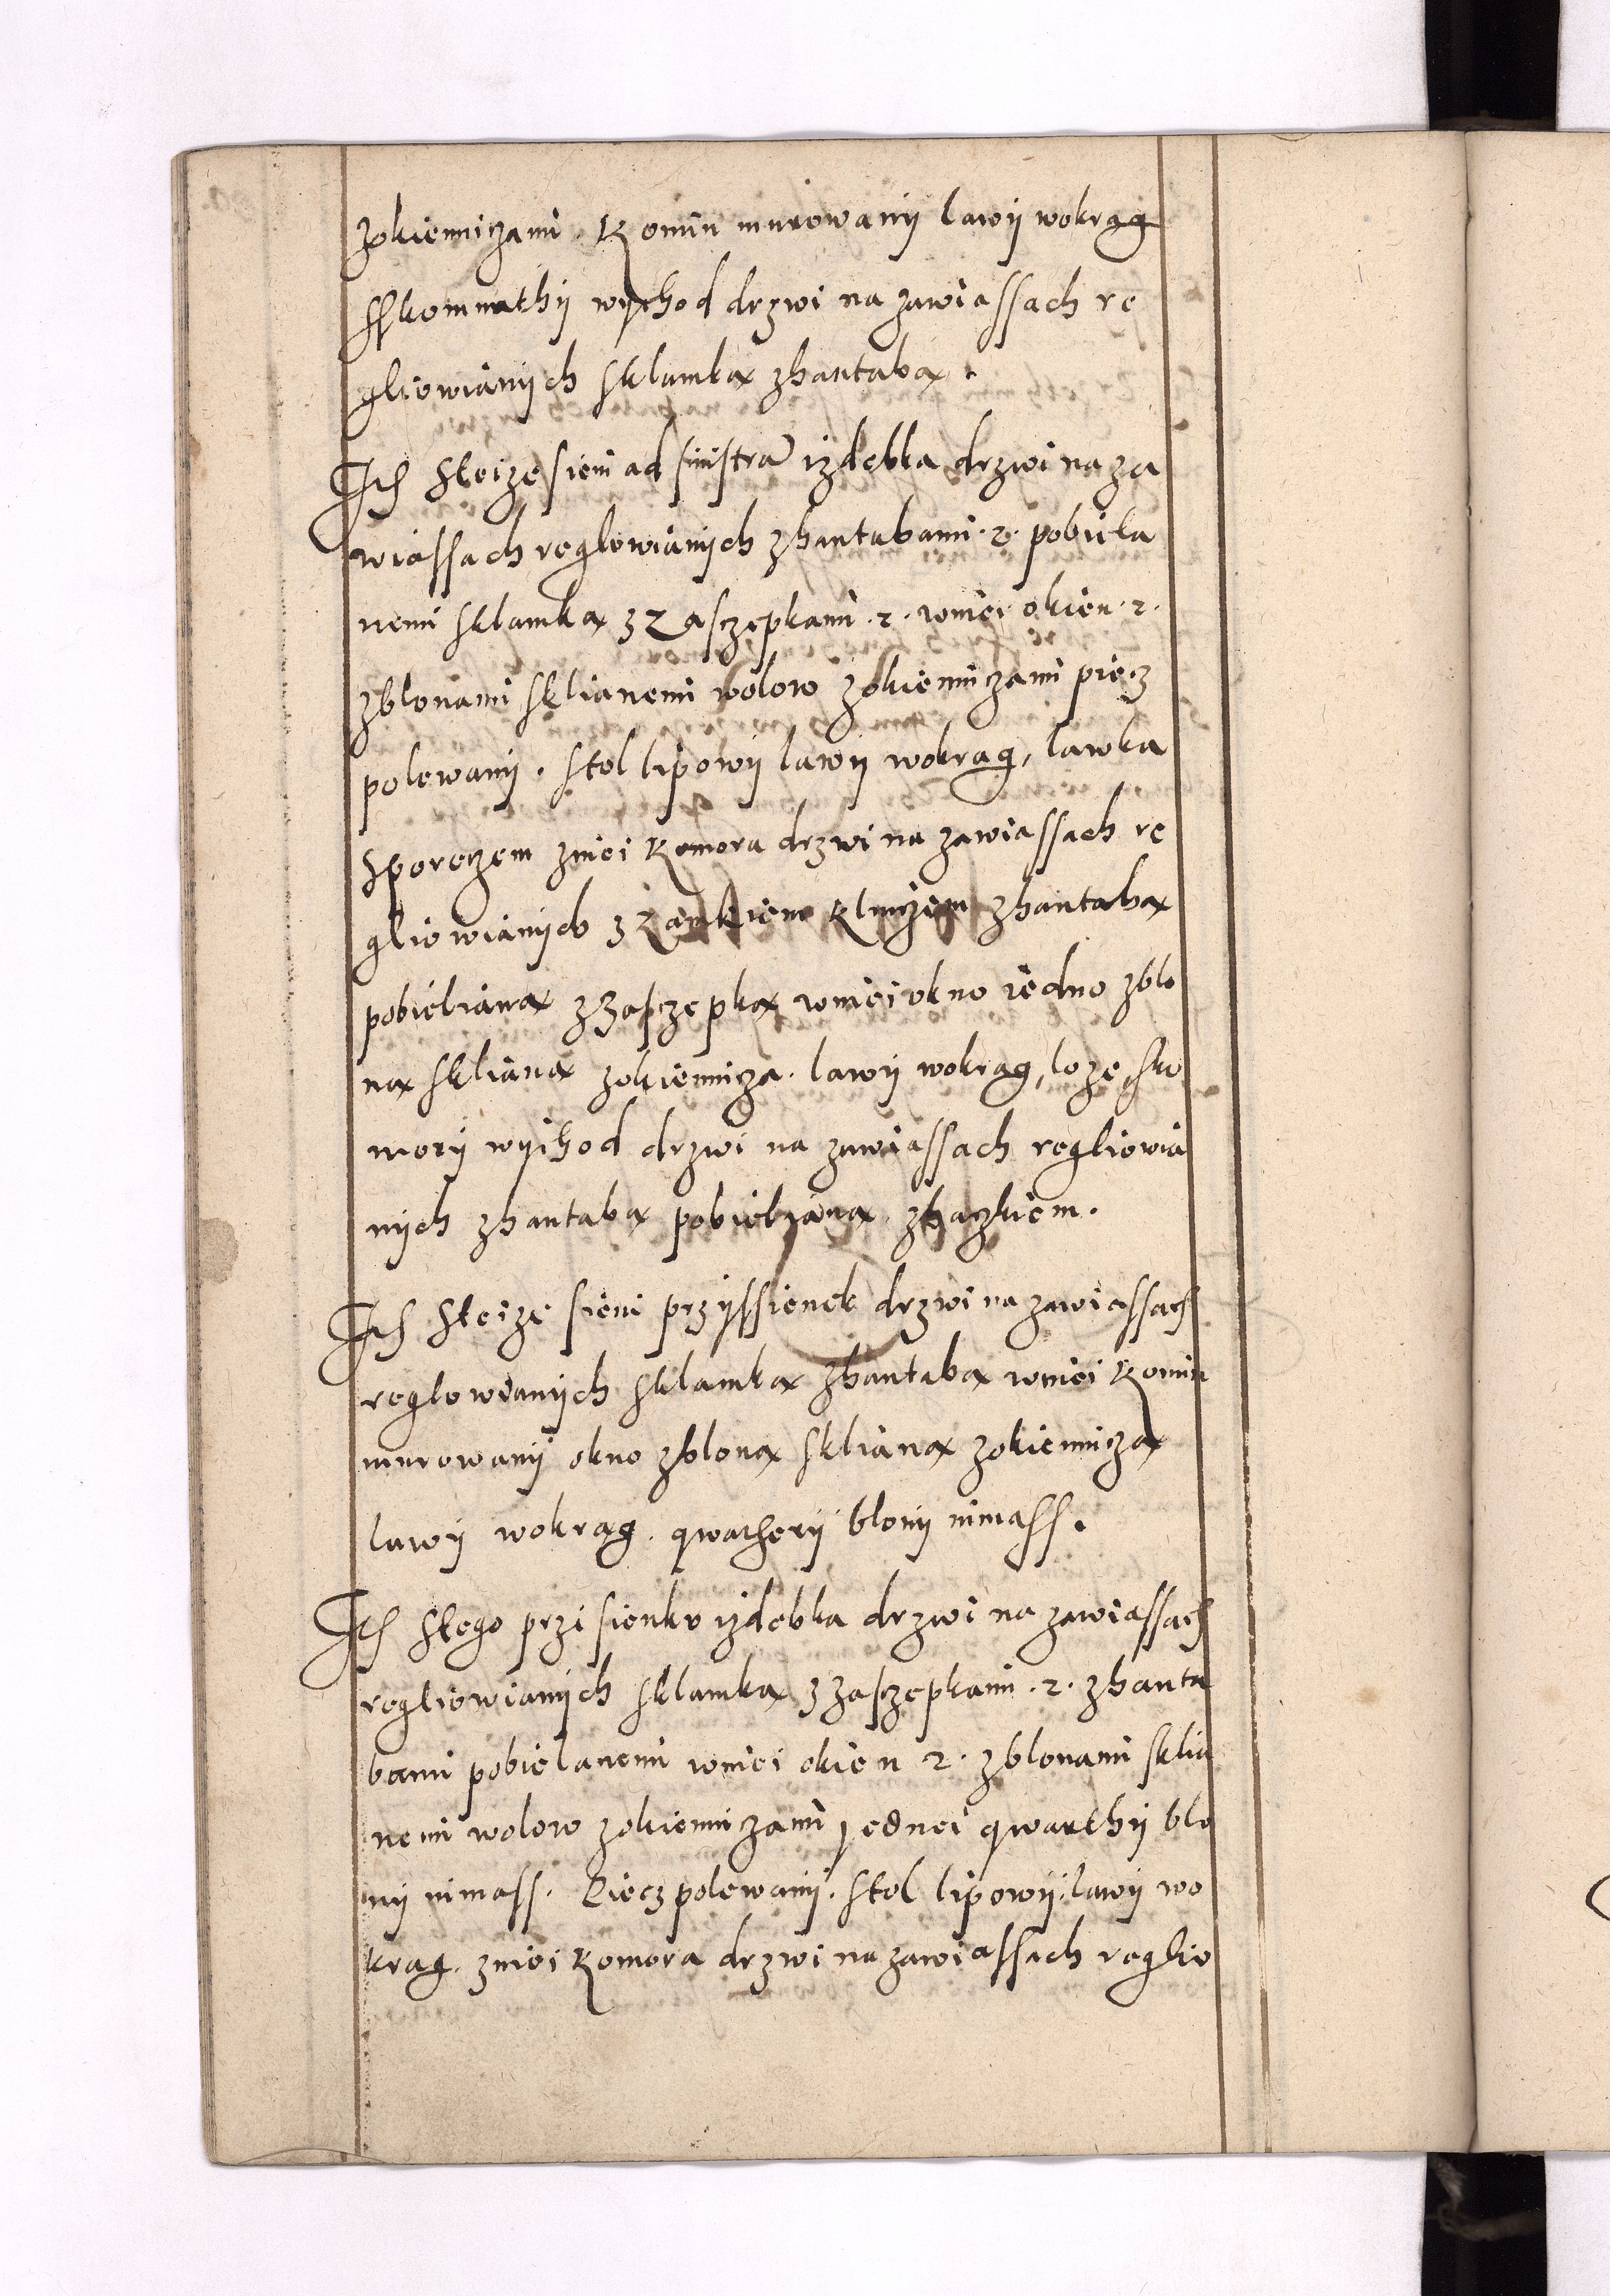 zokienniczami. Komin murowany lawy wokrag
Skomnathy wychod drzwi na zawiassach re
gliowianych sklamką zhantabą.
Ith steize sieni ad sinistrã izdebka drzwi na za
wiassach reglowianych zhantabami .2. pobiela
nemi sklamką z zasczepkami .2. wniei okien .2.
zblonami sklianemi wolow zokienniczami piecz
polewany. Stol lipowy lawy wokrag, lawka
sporeczem zniei komora drzwi na zawiassach re
gliowianych z zamkiem kluczem zhantabą
pobielianą z zasczepką wniei okno iedno zblo
ną sklianą zokiennicza. lawy wokrag, loze, sko
mory wychod drzwi na zawiassach regliowia
nych zhantabą pobielianą zhaczkiem.
Ith steize sieni przyssionek drzwi na zawiassach
reglowianych sklamką zhantabą wniei komin
murowany okno zbloną sklianą zokienniczą
lawy wokrag. qwathery blony nimass.
Ith stego przisionku izdebka drzwi na zawiassach
regliowianych sklamką z zasczepkami .2. zhanta
bami pobielanemi wniei okien 2. zblonami sklia
nemi wolow zokienniczami jednei qwarthy blo
ny nimass. Piecz polewany. Stol lipowy. lawy wo
krag. zniei komora drzwi na zawiassach reglio